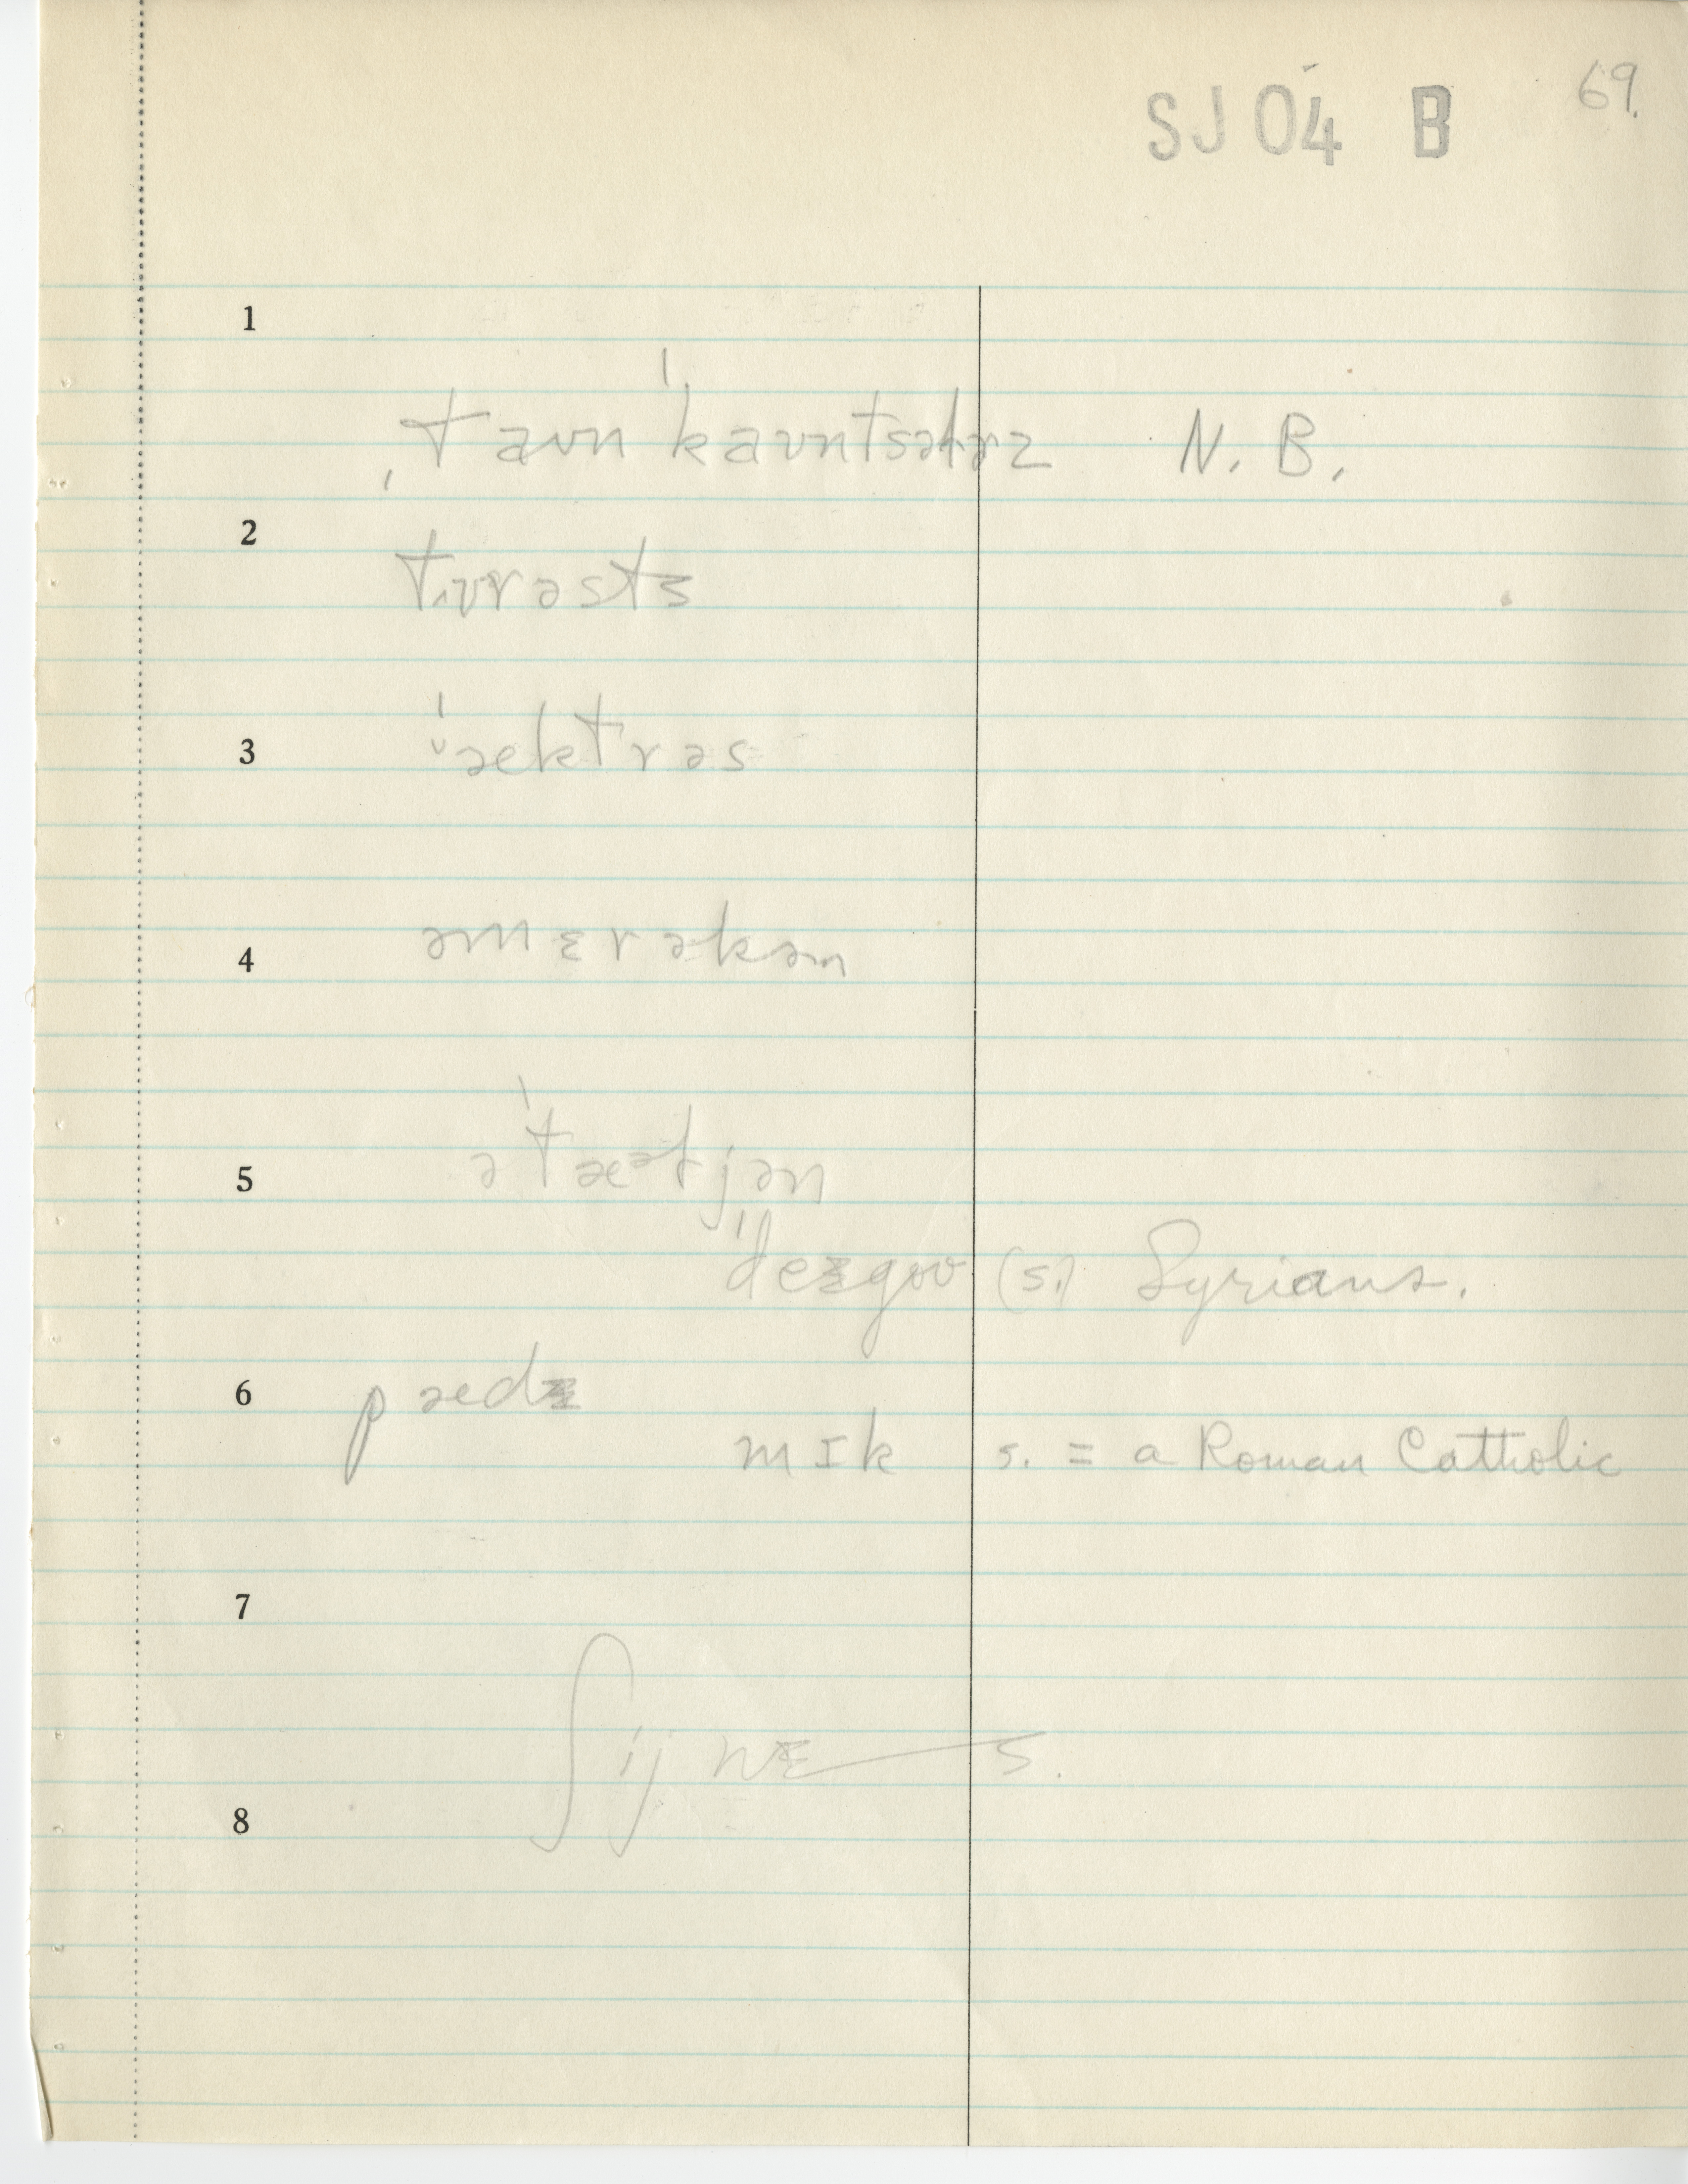 69.
SJ 04 B
1
ˌtaʊnˈkaʊntsələrz N. B.
2
tʊrəsts
3
ˈæktrəs
4
əmɛrəkən
5
əˈtæəljən
ˈdeɪgoʊ (s.) Syrians.
6 pædɪ
mɪk s. = a Roman Catholic
7
ʃijnɪ s.
8